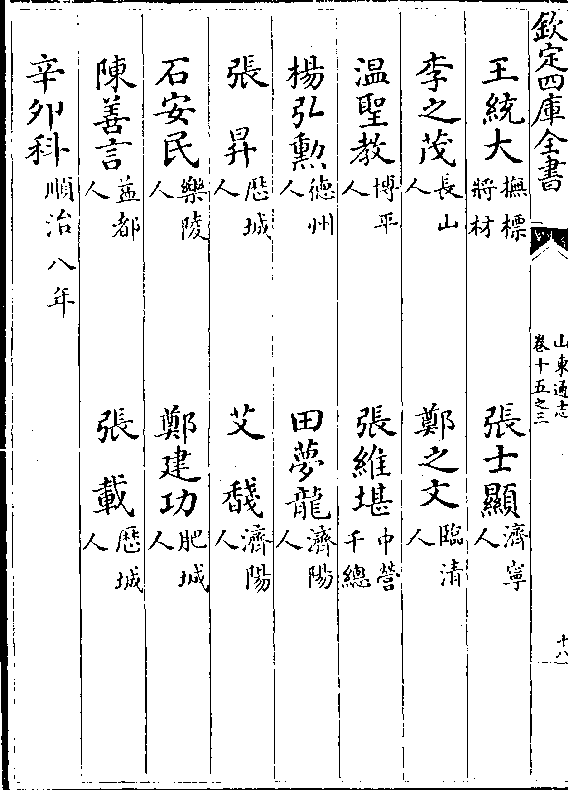 欽定四庫全書
山東通志
卷十五之三
十八
王統大 撫標將材 張士顯 濟寧人
李之茂 長山人 鄭之文 臨清人
温聖教 博平人 張維堪 中營千總
楊弘勲 德州人 田夢龍 濟陽人
張昇 歴城人 艾馢 濟陽人
石安民 樂陵人 鄭建功 肥城人
陳善言 益都人 張載 歴城人
辛卯科 順治八年